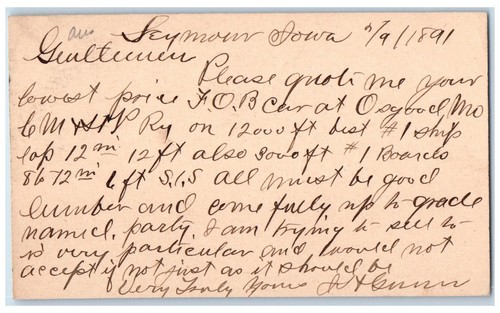 ans Seymour Iowa 5/9/1891
Gentlemen
Please quote me your
lowest price F.O.B car at Osgood, Mo
C M & St P Ry on 12000 ft best #1 ship
lap 12 in 12 ft also 3000 ft #1 Boards
8 to 12 in ft S.1.S all must be good
lumber and come fully up to grade
named, party I am trying to sell to
is very particular and would not
accept if not just as it should be
Very Truly Yours